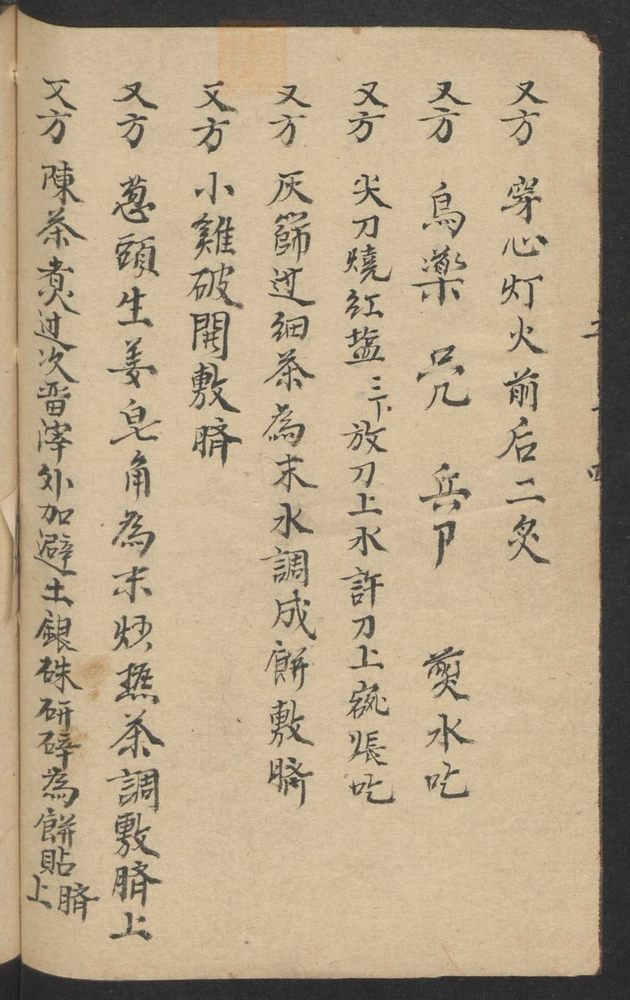 又方 穿心灯火前后二炙
又方 烏藥 兵卩 煎水吃
又方 尖刀燒紅盐三下放刀上水許刀上 吃
又方 灰篩过细茶為末水調成餅敷臍
又方 小雞破開敷臍
又方 葱頭生姜皂角為末炒 茶調敷臍上
又方 陳茶煑过次畱滓外加避土銀硃研碎為餅貼臍上